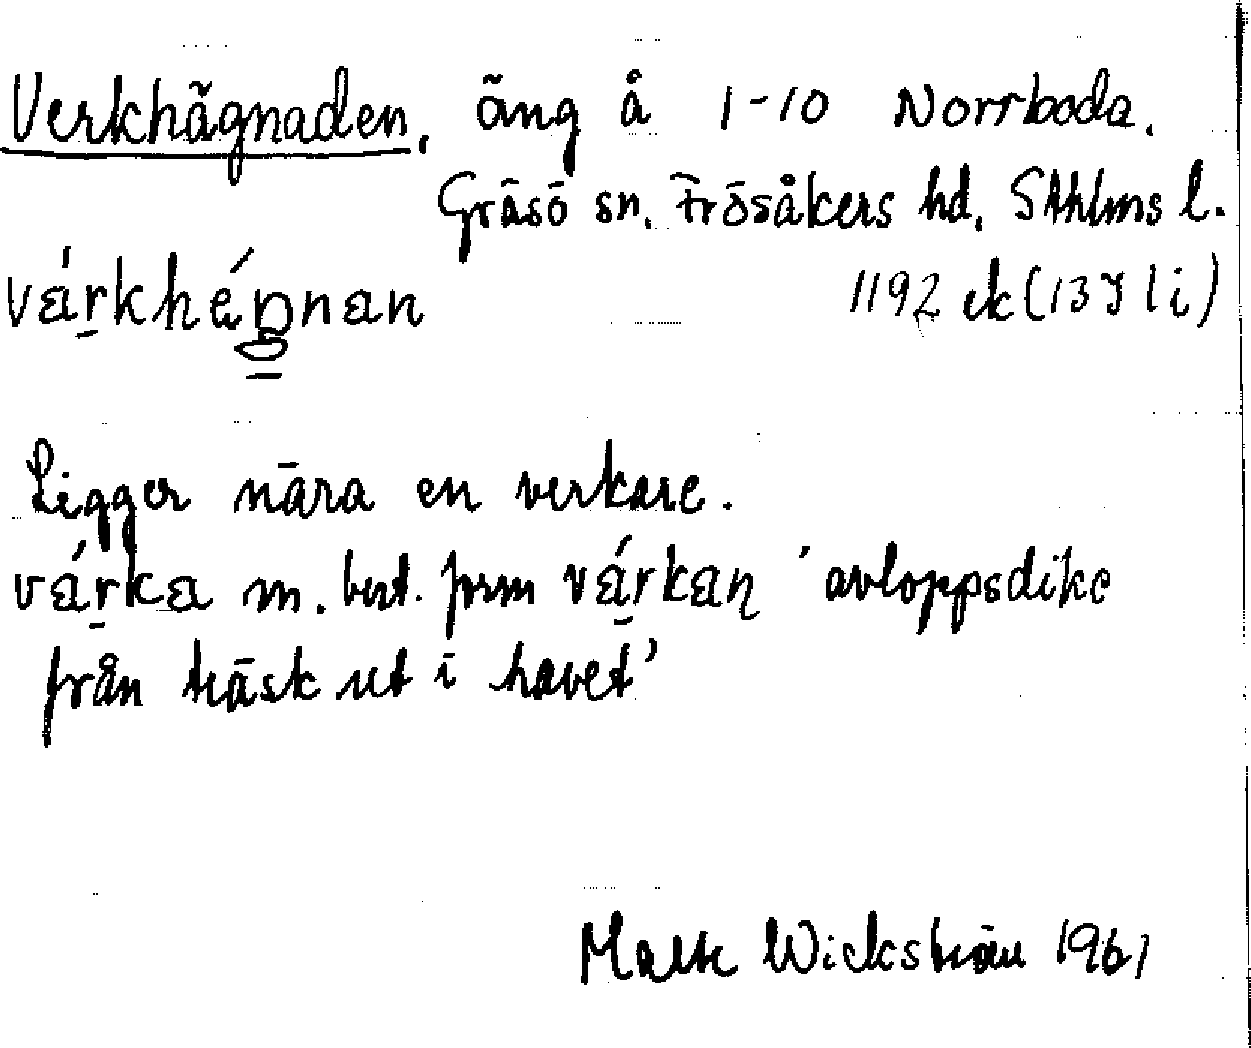 Verkhägnaden, äng å 1-10 Norrboda.
Gräsö sn. Frösåkers hd, Sthlms l.
várkhéŋnan 1192 ek (13J 1 i)
Ligger nära en verkare.
várka m. best. form várkan 'avloppsdike
från träsk ut i havet'
Wickström 1961